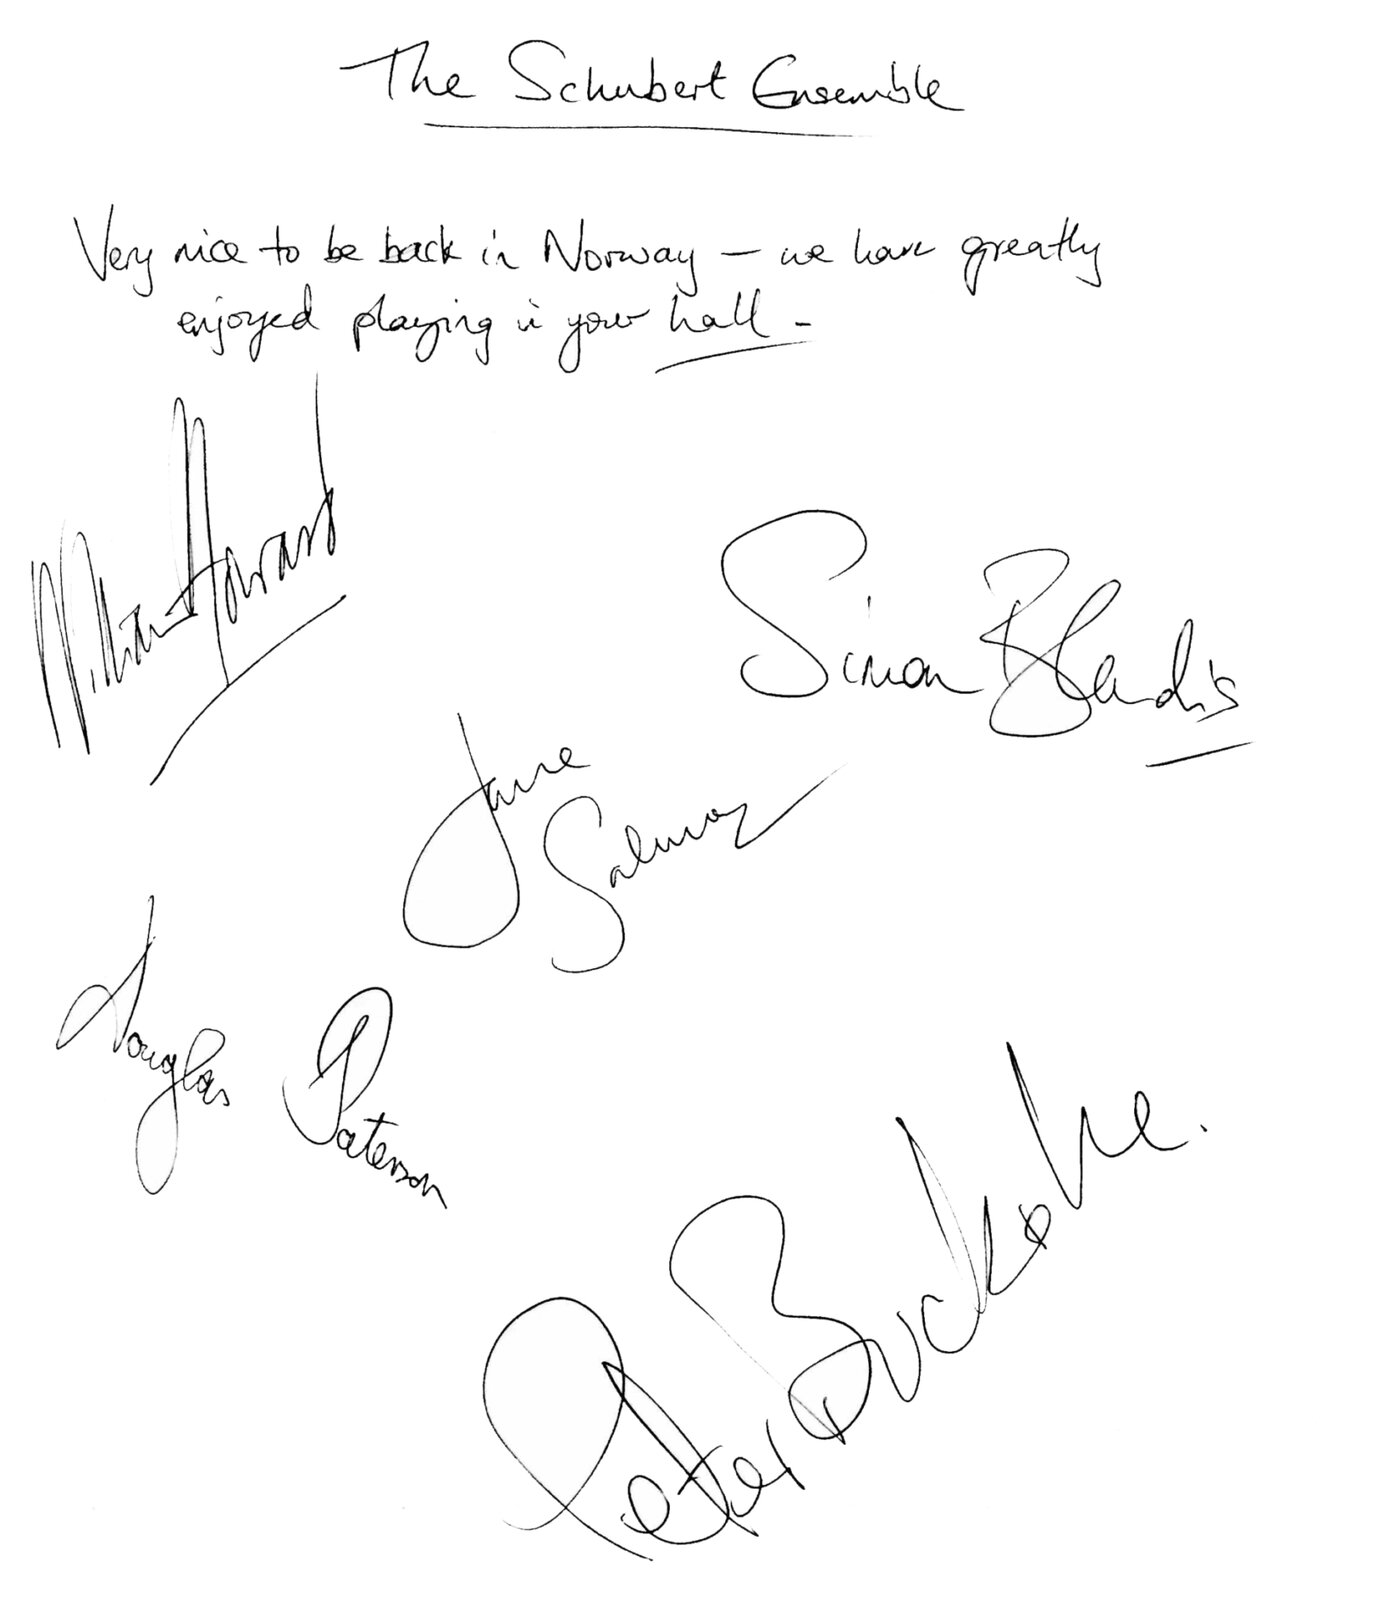 The Schubert Ensemble
Very nice to be back in Norway – we have greatly
enjoyed playing in your hall –
William Howard
Simon Blendis
Jane
Salmon
Douglas
Paterson
Peter Buckoke.